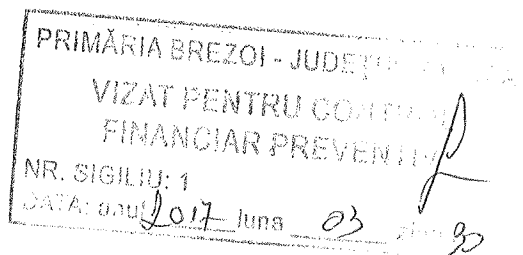 PRIMĂRIA BREZOI - JUDEȚUL
VIZAT PENTRU CONTROL
FINANCIAR PREVENTIV
NR. SIGILIU: 1
DATA: anul 2017 luna 03 ziua 30